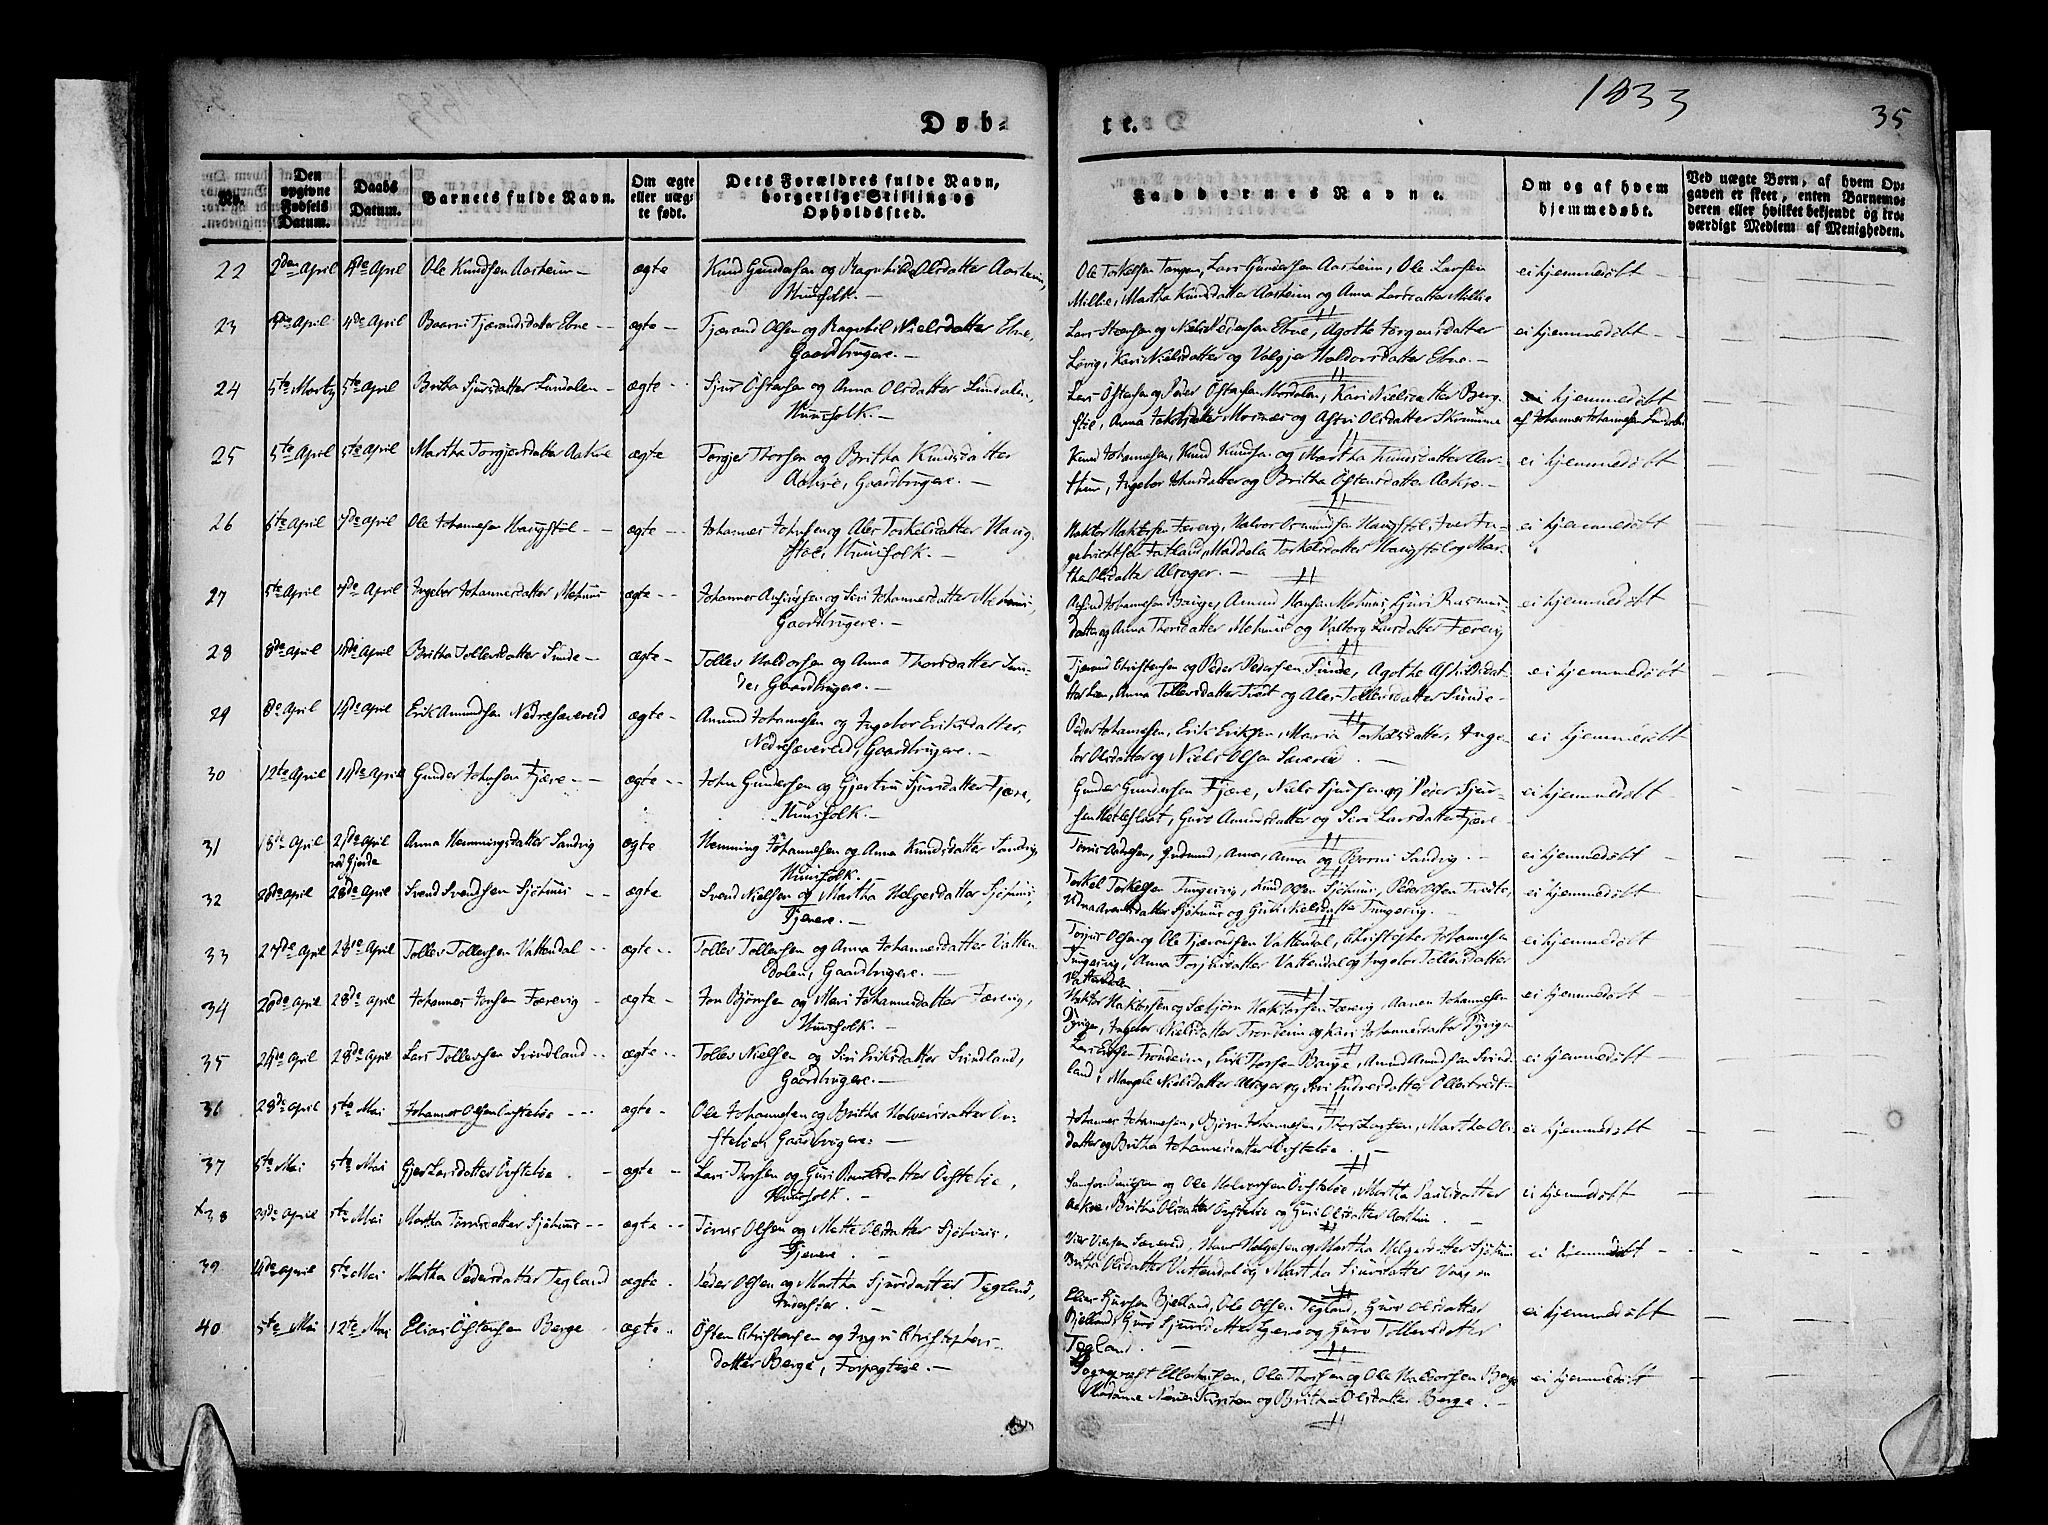 1833
35
Døb-
te.
No.
Den opgivne Fødsels Datum.
Daabs Datum.
Barnets fulde Navn.
Om ægte eller uægte født.
Dets Forældres fulde Navn, borgerlige Stilling og Opholdssted.
Faddernes Navne.
Om og af hvem hjemmedøbt.
Ved uægte Børn, af hvem Opgaven er skeet, enten Barnemoderen eller hvilket bekjendt og troværdigt Medlem af Menigheden.
22 2den April April Ole Knudsen Aasheim ægte Knud Gundersen og Ragnhilde Olsdatter Aasheim,
Huusfolk.
Ole Torkelsen Tangen, Lars Gundersen Aasheim, Ole Larsen
Millie, Martha Knudsdatter Aasheim og Anna Larsdatter Millie
ei hjemmedøbt
23 April 4de April Tjærandsdatter Ebne ægte Tjærand Olsen og Nielsdatter Ebne,
Gaardbrugere.
Lars og Niels Pedersen Ebne, Agothe Jørgensdatter
Løvig, Kari Nielsdatter og Valgjer Haldorsdatter Ebne.
ei hjemmedøbt
24 5te Marty 5te April Britha Sjursdatter Sundalen ægte Sjur Østensen og Anna Olsdatter Sundalen,
Huusfolk.
Lars Østensen og Peder Østensen Mordalen, Kari Nielsdatter Berg-
stie, Anna og Astri Olsdatter Skromme
hjemmedøbt
af Johannes Johannesen
25 5te April 5te April Martha Torgjersdatter Aakre ægte Torgjer Thorsen og Britha Knudsdatter
Aakre, Gaardbrugere.
Knud Johannesen, Knud Knudsen og Martha Knudsdatter Aar-
thun, Ingebor Johnsdatter og Britha Østensdatter Aakre.
ei hjemmedøbt
26 April 7de April Ole Johannesen Haugstøl ægte Johannes Johnsen og Ales Torkelsdatter Haug-
støl, Huusfolk.
Haktor Haktorsen Færevig, Halvor Ormundsen Haugstøl, Iver In-
gebrichtsen Fatland, Maddela Torkelsdatter Haugstøl og Mar-
tha Olsdatter Alsager.
ei hjemmedøbt
27 5te April 7de April Ingebor Johannesdatter Mehuus ægte Johannes Arfindsen og Siri Johannesdatter Mehuus,
Gaardbrugere.
Johannesen Bauge, Amund Hansen Mehuus, Guri Rasmus-
datter og Anna Thorsdatter Mehuus og Valborg Larsdatter Færevig
ei hjemmedøbt
28 8de April 14de April Britha Tollevsdatter Sunde ægte Tollev Haldorsen og Anna Thorsdatter Sun-
de, Gaardbrugere.
Tjærand Christensen og Peder Pedersen Sunde, Agothe
Anna Tollevsdatter og Ales Tollevsdatter Sunde
ei hjemmedøbt
29 8de April 14de April Erik Amundsen Nedresævereid ægte Amund Johannesen og Ingebor Eriksdatter
Nedresævereid, Gaardbrugere.
Peder Johannesen, Erik Eriksen, Maria Torkelsdatter, Inge-
bor Olsdatter og Niels Olsen Sævereid.
ei hjemmedøbt
30 12te April 14de April Gunder Johnsen Fjære ægte John Gundersen og Gjertru Sjursdatter Fjære,
Huusfolk.
Gunder Gundersen Fjære, Niels Sjursen og Peder Sjur-
sen Hetleflaat, Guro Amundsdatter og Siri Larsdatter Fjære
ei hjemmedøbt
31 18de April 21de April
ved Gjerde
Anna Hemmingsdatter Sandvig ægte Hemming Johannesen og Anna Knudsdatter Sandvig,
Huusfolk.
Tørris Andresen, Gudmund, Anna, Anna og Sandvig.
ei hjemmedøbt
32 April 28de April Svend Svendsen Sjøhuus ægte Svend Nielsen og Martha Helgesdatter Sjøhuus,
Tjenere.
Torkel Torkelsen Tungesvig, Knud Olsen Sjøhuus, Peder Olsen
Sjøhuus og Guri Nielsdatter Tungesvig.
ei hjemmedøbt
33 27de April 28de April Tollev Tollevsen Vattendal ægte Tollev Tollevsen og Anna Johannesdatter Vatten-
dalen, Gaardbrugere.
Olsen og Ole Tjærandsen Vattendal, Christopher Johannesen
Tungesvig, Anna Vattendal og Ingebor Tollevsdatter
Vattendalen
ei hjemmedøbt
34 April 28de April Johannes Jonsen Færevig ægte Jon Bjørnsen og Mari Johannesdatter Færevig,
Huusfolk.
Haktor Haktorsen og Sæbjørn Haktorsen Færevig, Aamen Johannesen
Ingebor Nielsdatter Trondeim og Kari Johannesdatter
ei hjemmedøbt
35 April 28de April Lars Tollevsen Svindland ægte Tollev Nielsen og Siri Eriksdatter Svindland,
Gaardbrugere.
Lars Trondeim, Erik Thorsen Bauge, Amund Amundsen Svind-
land, Nielsdatter Alsager og Siri
ei hjemmedøbt
36 28de April 5te Mai Johannes Olsen Østebøe ægte Ole Johannesen og Britha Halvorsdatter Øv-
stebøe, Gaardbrugere.
Johannes Johannesen, Bjørn Johannesen, Larsen, Martha Ols-
datter og Britha Johannesdatter Østebøe.
ei hjemmedøbt
37 5te Mai 5te Mai Larsdatter Østebøe. ægte Lars Thorsen og Guri datter Østebøe,
Huusfolk.
og Ole Halvorsen Østebøe, Martha Paulsdatter
Aakre, Britha Olsdatter Østebøe og Guri Olsdatter Aarthun.
ei hjemmedøbt
38 April 5te Mai Martha Tørrisdatter Sjøhuus ægte Tørris Olsen og Mette Olsdatter Sjøhuus.
Tjenere.
Sævereid, Helgesen og Martha Helgesdatter Sjøhuus
Olsdatter Vattendal og Martha Sjursdatter
ei hjemmedøbt
39 April 5te Mai Martha Pedersdatter Tegland ægte Peder Olsen og Martha Sjursdatter Tegland,
Inderster.
Elias Sjursen Bjelland, Ole Olsen Tegland, Guro Olsdatter
Bjelland, Guro og Guro Tollevsdatter
Tegland.
ei hjemmedøbt
40 5te Mai 12te Mai Elias Østensen Berge ægte Østen Christensen og Ingri Christophers-
datter Berge, Forpagtere.
Ellertsen, Ole Thorsen og Ole Haldorsen Berge
Madame og Britha Olsdatter Berge.
ei hjemmedøbt